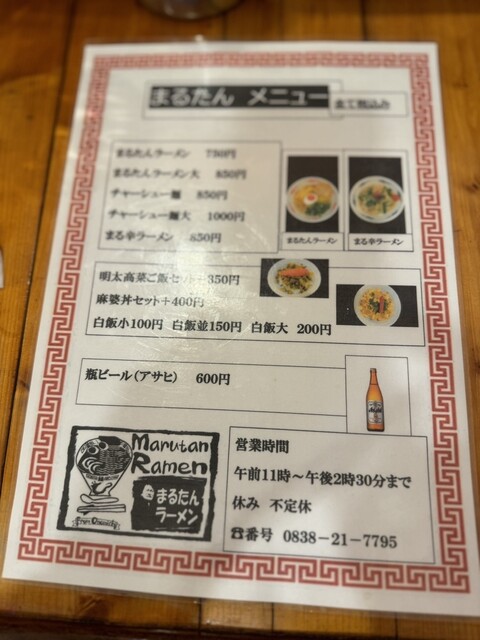 まるたん メニュー 全て税込み
まるたんラーメン 750円
まるたんラーメン大 850円
チャーシュー麺 850円
チャーシュー麺大 1000円
まる辛ラーメン 850円
まるたんラーメン まる辛ラーメン
明太高菜ご飯セット+350円
麻婆丼セット+400円
白飯小100円 白飯並150円 白飯大 200円
瓶ビール(アサヒ) 600円
Marutan
Ramen
まるたん
ラーメン
営業時間
午前11時～午後2時30分まで
休み 不定休
☎番号 0838-21-7795